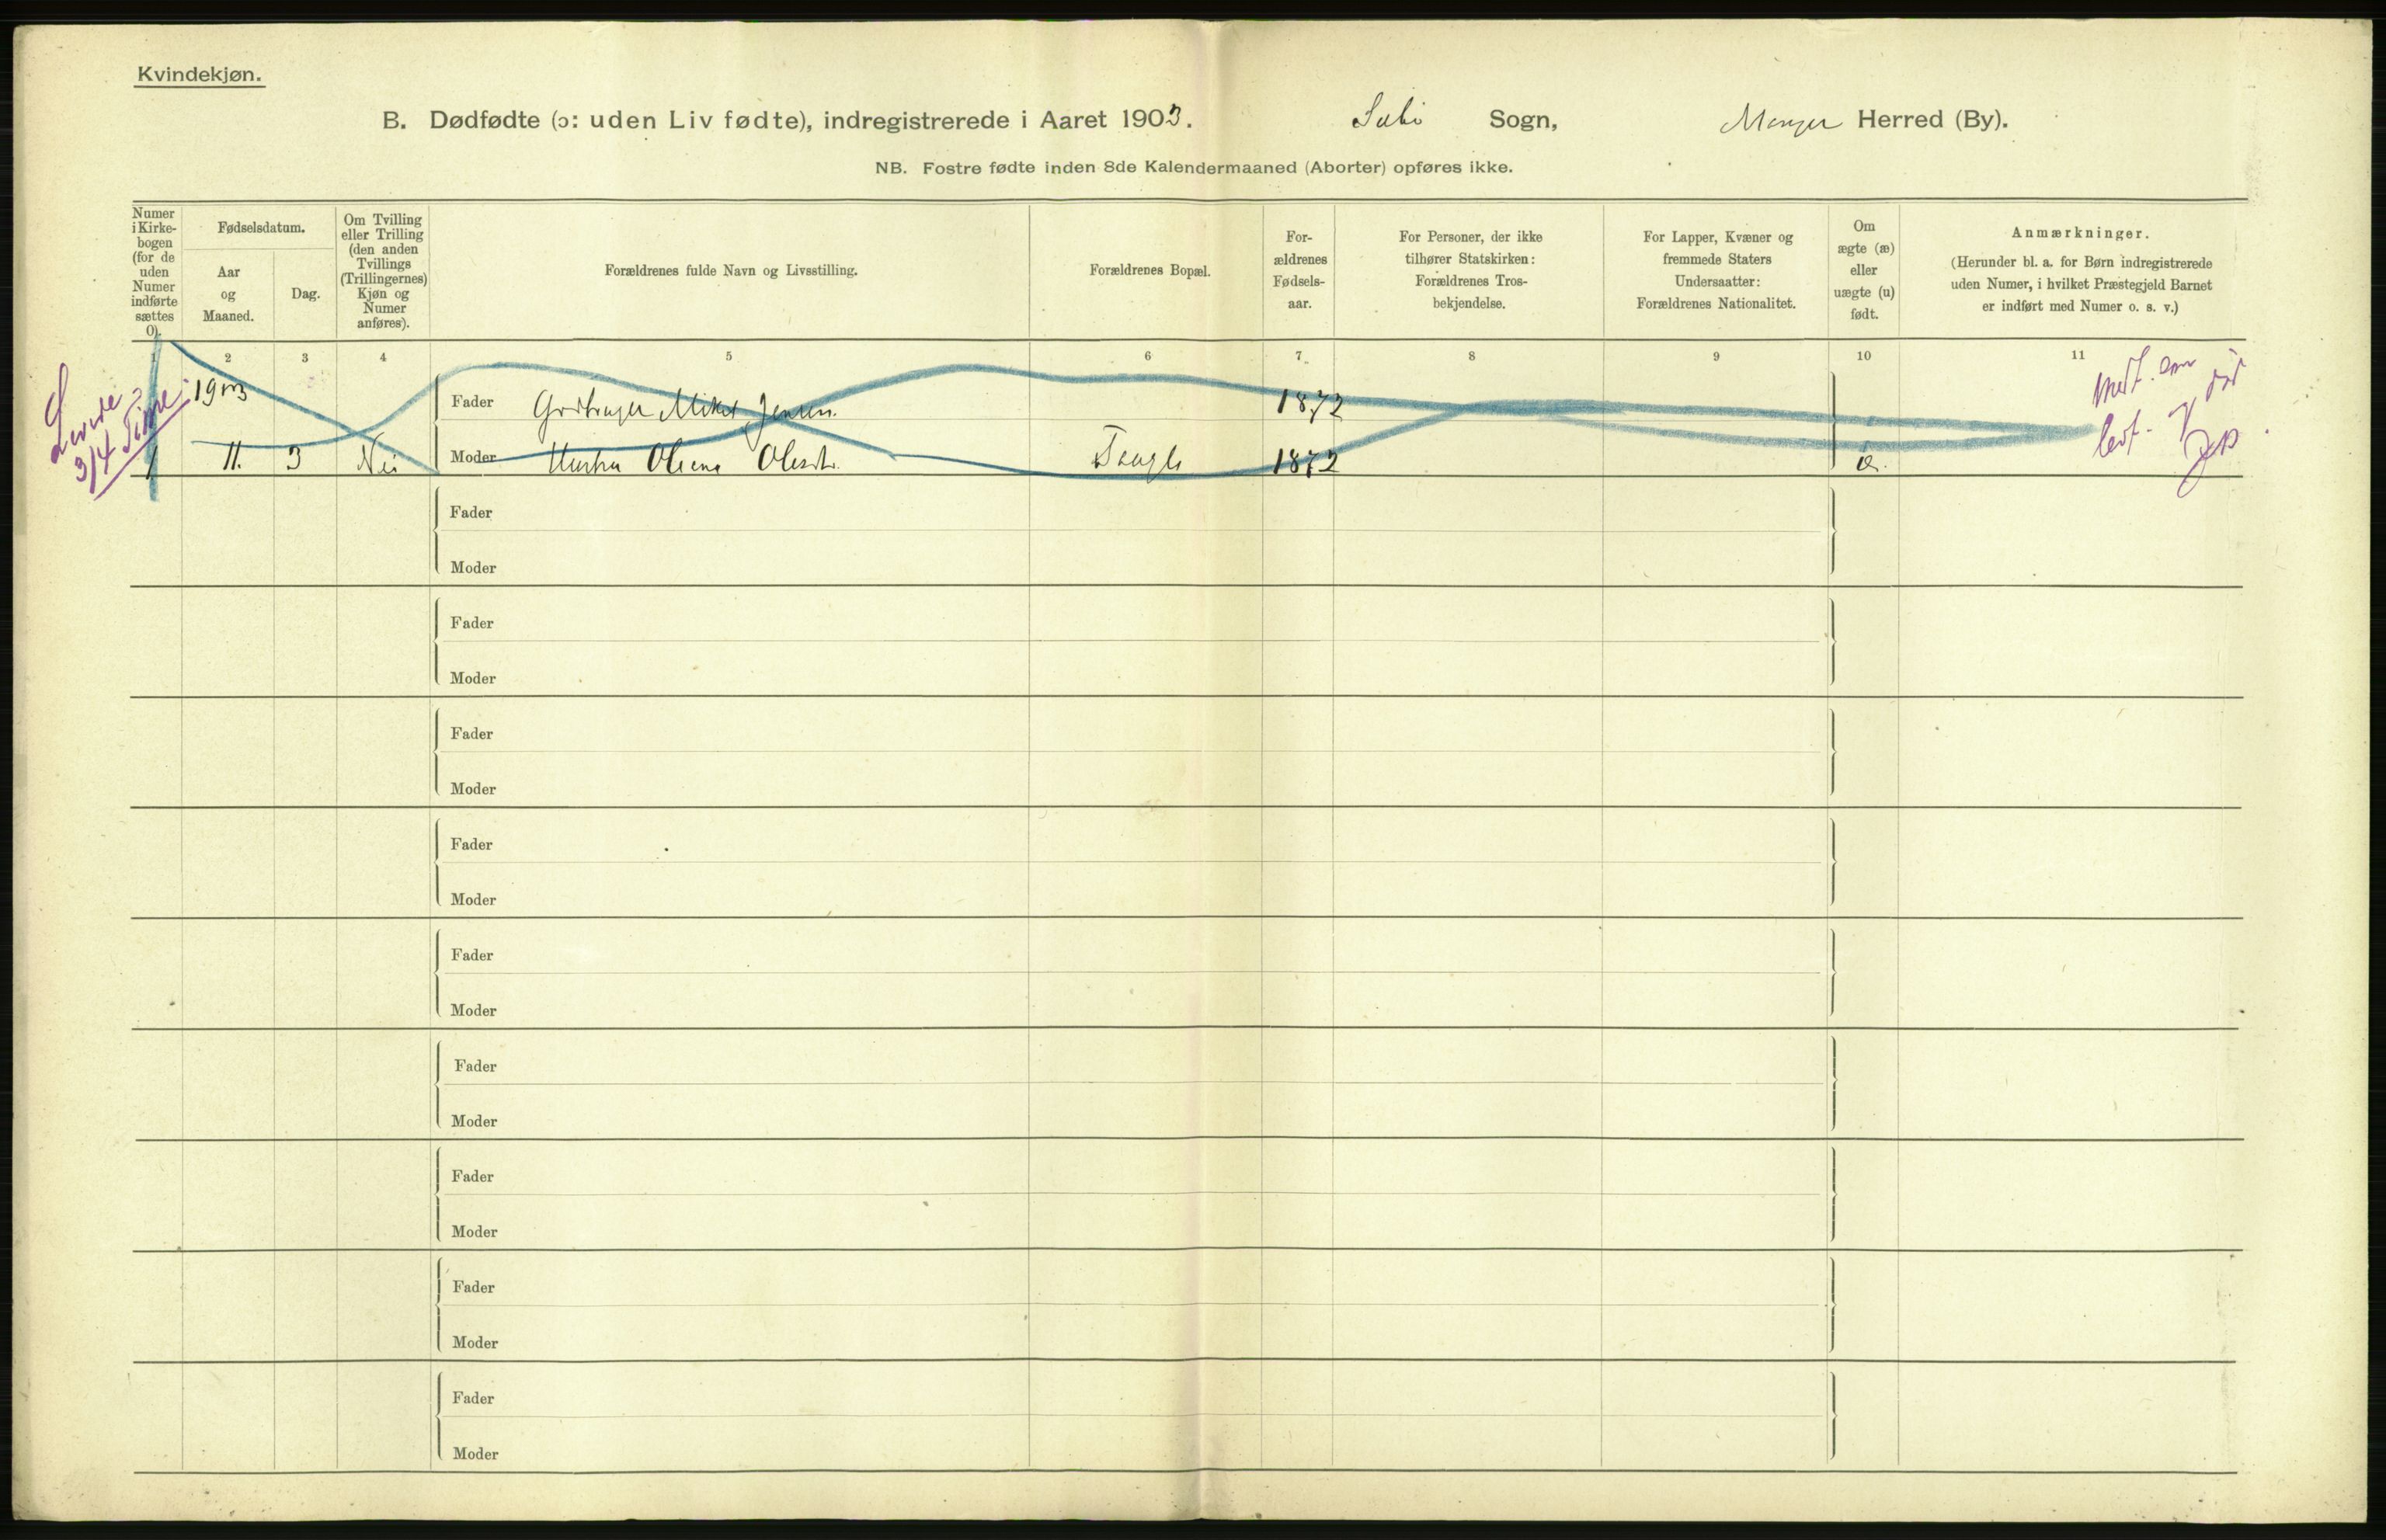 Kvindekjøn.
B. Dødfødte (ɔ: uden Liv fødte), indregistrerede i Aaret 1903. Sæbø Sogn, Manger Herred (By).
NB. Fostre fødte inden 8de Kalendermaaned (Aborter) opføres ikke.
Numer
i Kirke-
bogen
(for de
uden
Numer
indførte
sættes
0).
Fødselsdatum.
Aar
og
Maaned.
Dag.
Om Tvilling
eller Trilling
(den anden
Tvillings
(Trillingernes)
Kjøn og
Numer
anføres).
Forældrenes fulde Navn og Livsstilling.
Forældrenes Bopæl.
For-
ældrenes
Fødsels-
aar.
For Personer, der ikke
tilhører Statskirken:
Forældrenes Tros-
bekjendelse.
For Lapper, Kvæner og
fremmede Staters
Undersaatter:
Forældrenes Nationalitet.
Om
ægte (æ)
eller
uægte (u)
født.
Anmærkninger.
(Herunder bl. a. for Børn indregistrerede
uden Numer, i hvilket Præstegjeld Barnet
er indført med Numer o. s. v.)
1 2 3 4 5 6 7 8 9 10 11
Levede
3/4 Time
1903
Fader Gaardbruger Mikal Jensen 1872
1 11. 3 Nei Moder Hustru Olsdtr. 1872 æ.
Fader
Moder
Fader
Moder
Fader
Moder
Fader
Moder
Fader
Moder
Fader
Moder
Fader
Moder
Fader
Moder
Fader
Moder